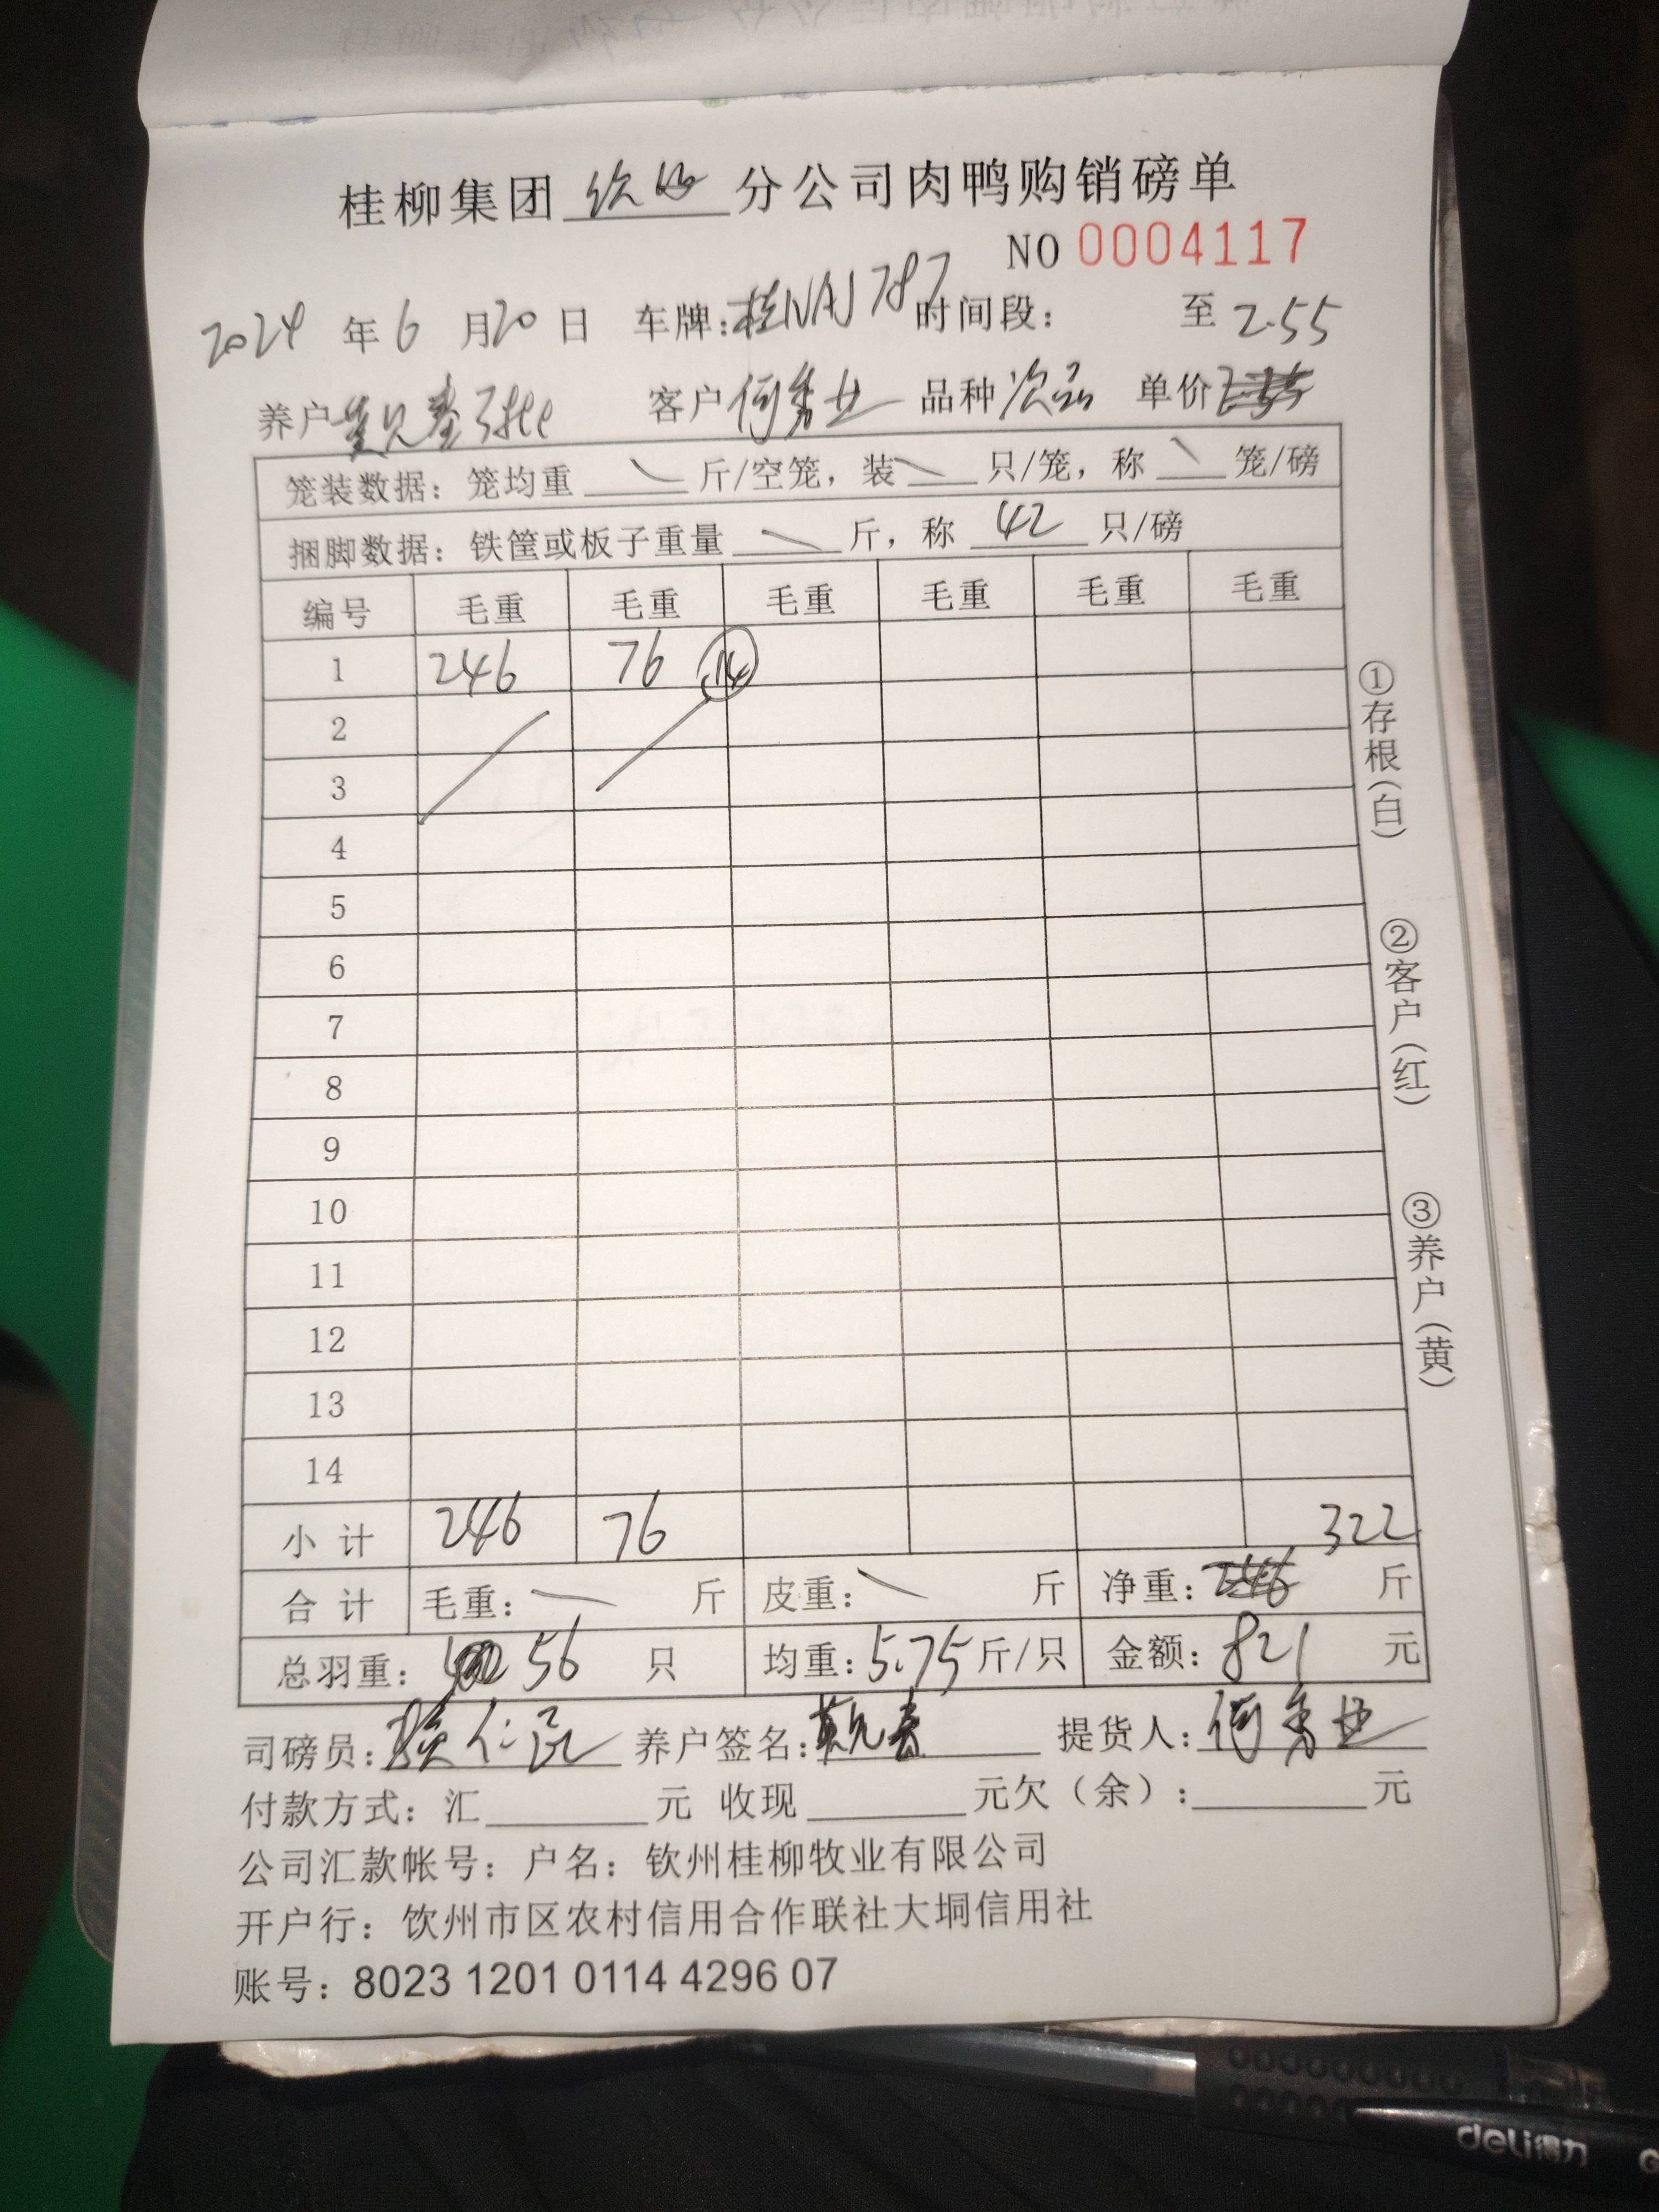 桂柳集团 钦州 分公司肉鸭购销磅单
NO 0004117
2024 年 6 月 20 日 车牌:桂NAJ787 时间段: 至 2.55
养户 客户 何秀业 品种 次品 单价
笼装数据: 笼均重 斤/空笼, 装 只/笼, 称 笼/磅
捆脚数据: 铁筐或板子重量 斤, 称 42 只/磅
编号 毛重 毛重 毛重 毛重 毛重 毛重
1 246 76 14
2
3
4
5
6
7
8
9
10
11
12
13
14
小计 246 76 322
合计 毛重: 斤 皮重: 斤 净重: 246 斤
总羽重: 56 只 均重: 5.75 斤/只 金额: 821 元
司磅员: 养户签名: 提货人: 何秀业
付款方式: 汇 元 收现 元欠(余): 元
公司汇款帐号: 户名: 钦州桂柳牧业有限公司
开户行: 饮州市区农村信用合作联社大垌信用社
账号: 8023 1201 0114 4296 07
①存根(白)
②客户(红)
③养户(黄)
deli得力